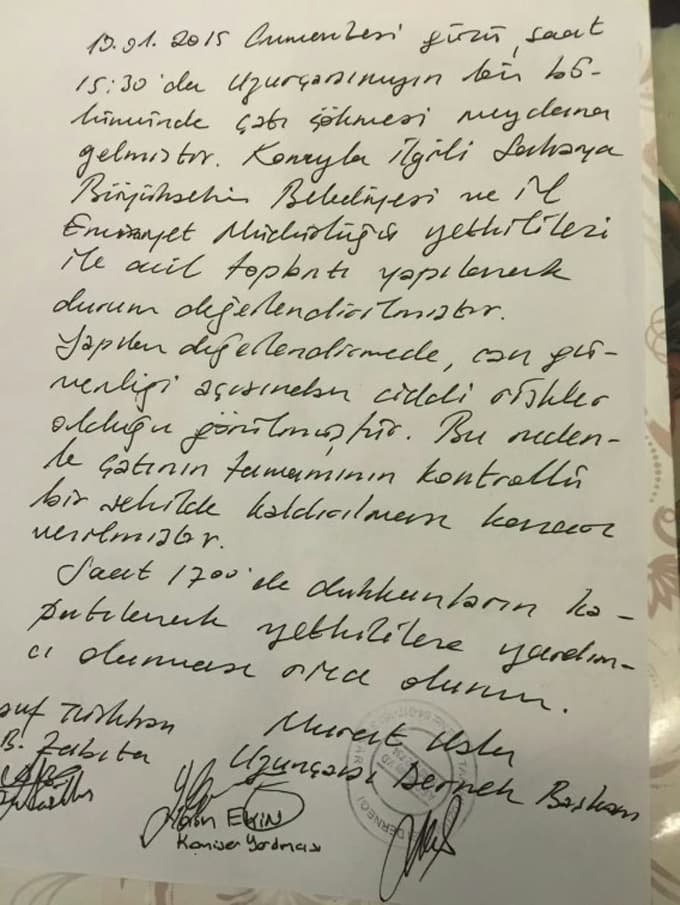 19.01.2015 Cumartesi günü, saat
15:30'da Uzunçarşımızın bir bö-
lümünde çatı çökmesi meydana
gelmiştir. Konuyla ilgili Sakarya
Büyükşehir Belediyesi ve İl
Emniyet Müdürlüğü yetkilileri
ile acil toplantı yapılarak
durum değerlendirilmiştir.
Yapılan değerlendirmede, can gü-
venliği açısından ciddi riskler
olduğu görülmüştür. Bu neden-
le çatının tamamının kontrollü
bir şekilde kaldırılması kararı
verilmiştir.
Saat 1700'de dükkanların ka-
patılarak yetkililere yardım-
cı olunması rica olunur.
Türkkan Murat Uslu
B. Zabıta Uzunçarşı Dernek Başkanı
EKİN
Komiser Yardımcısı
DERNEĞİ